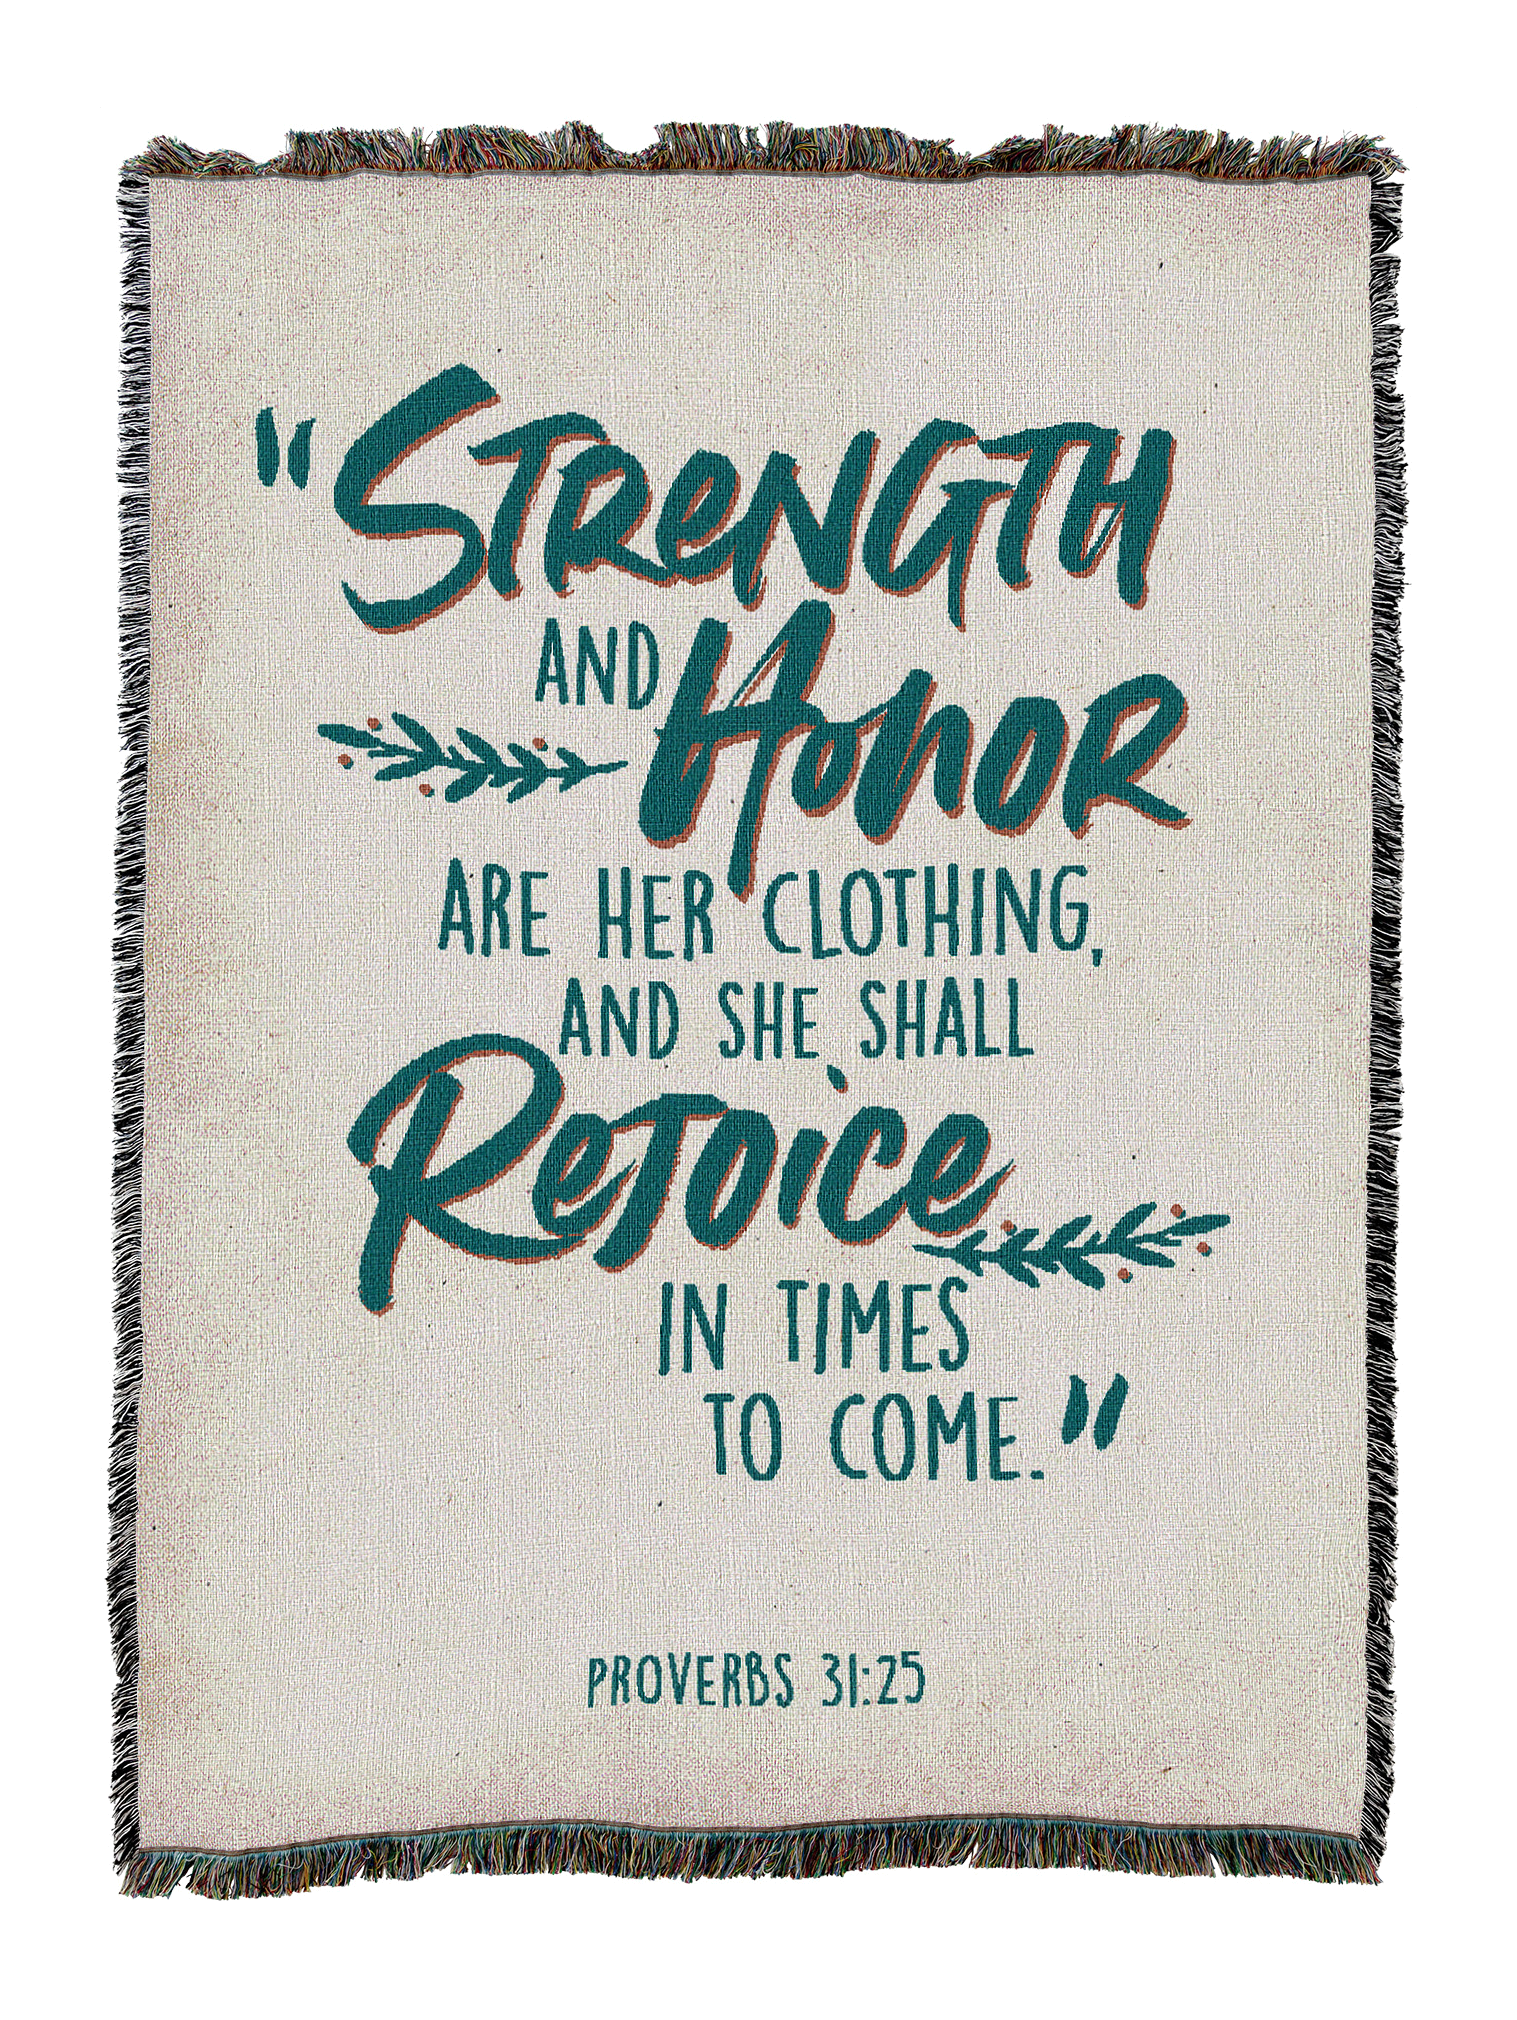 "STRENGTH
AND HONOR
ARE HER CLOTHING,
AND SHE SHALL
REJOICE
IN TIMES
TO COME."
PROVERBS 31:25